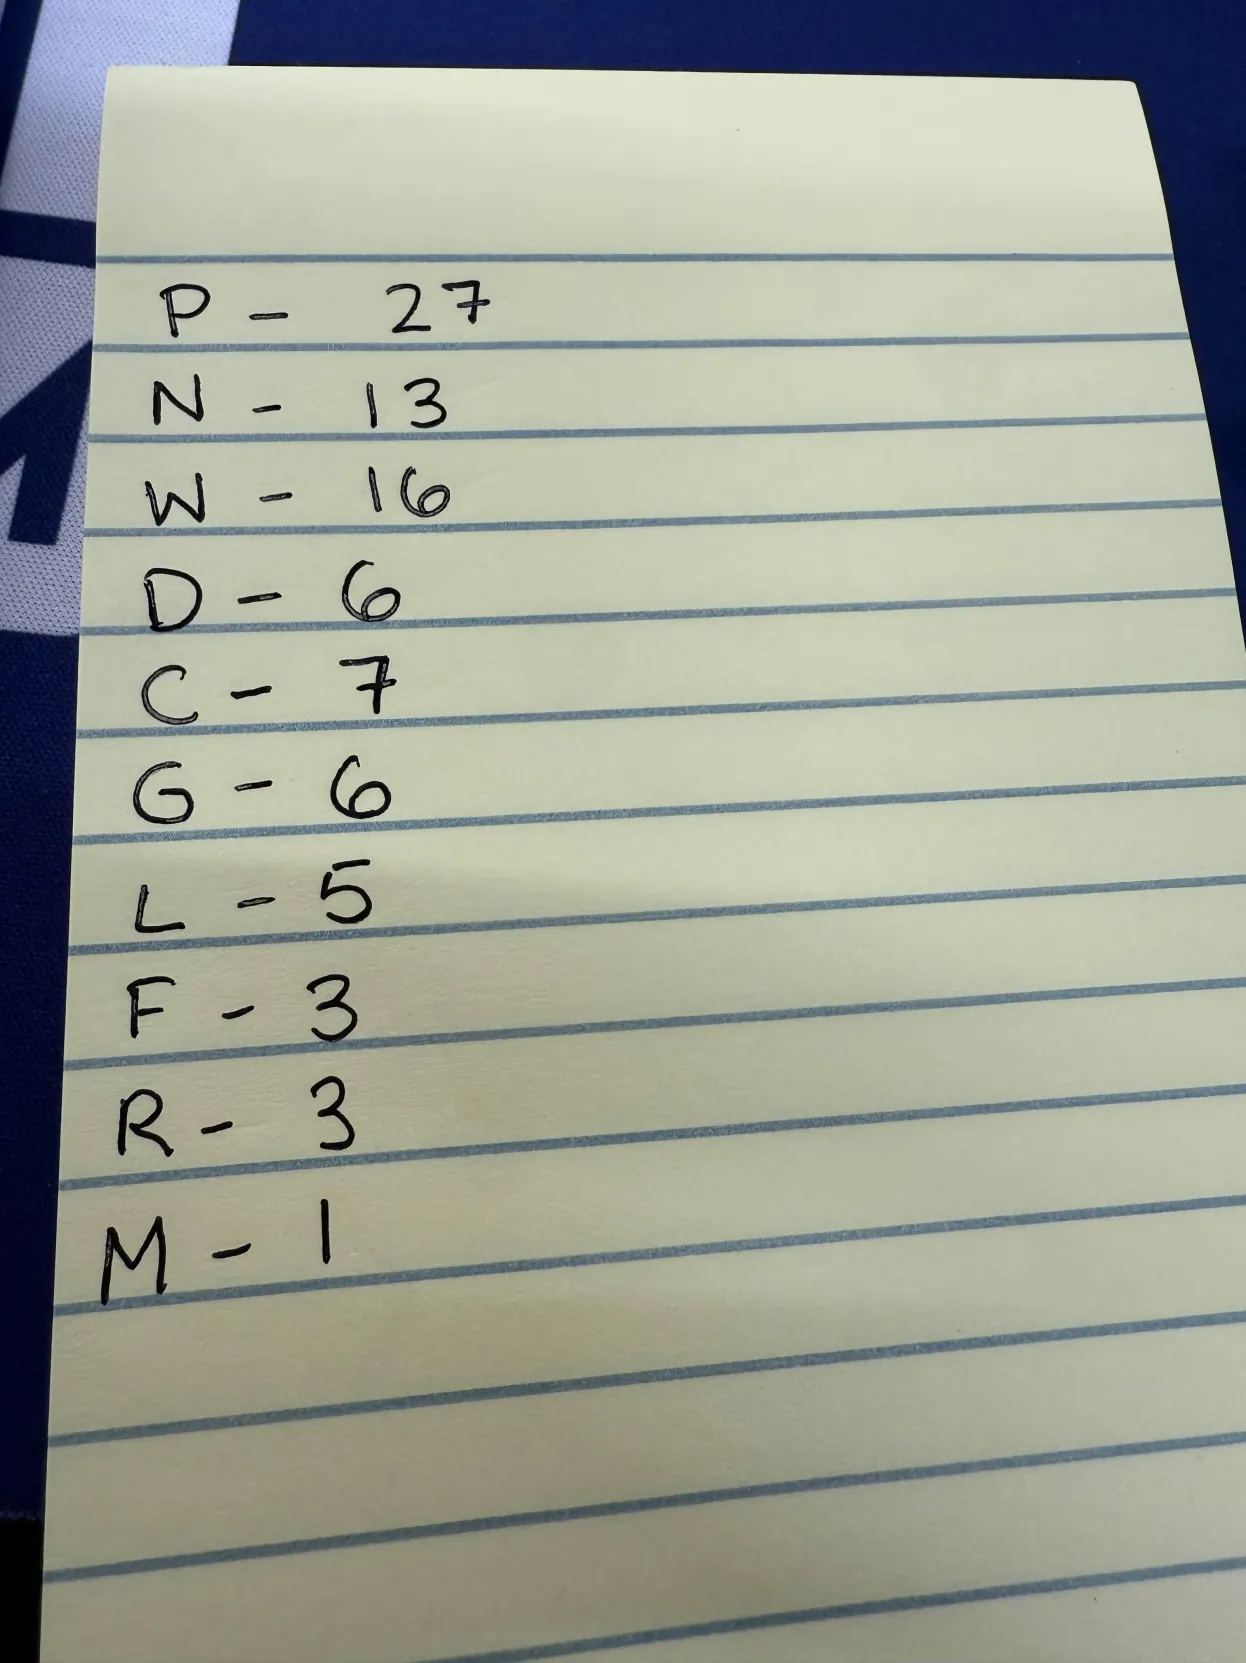 P - 27
N - 13
W - 16
D - 6
C - 7
G - 6
L - 5
F - 3
R - 3
M - 1